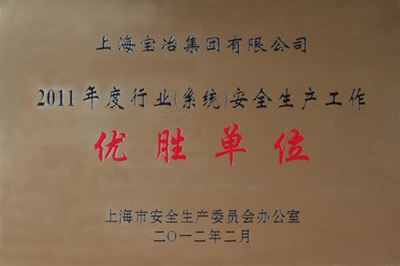 上海宝冶集团有限公司
2011年度行业(系统)安全生产工作
优胜单位
上海市安全生产委员会办公室
二〇一二年二月